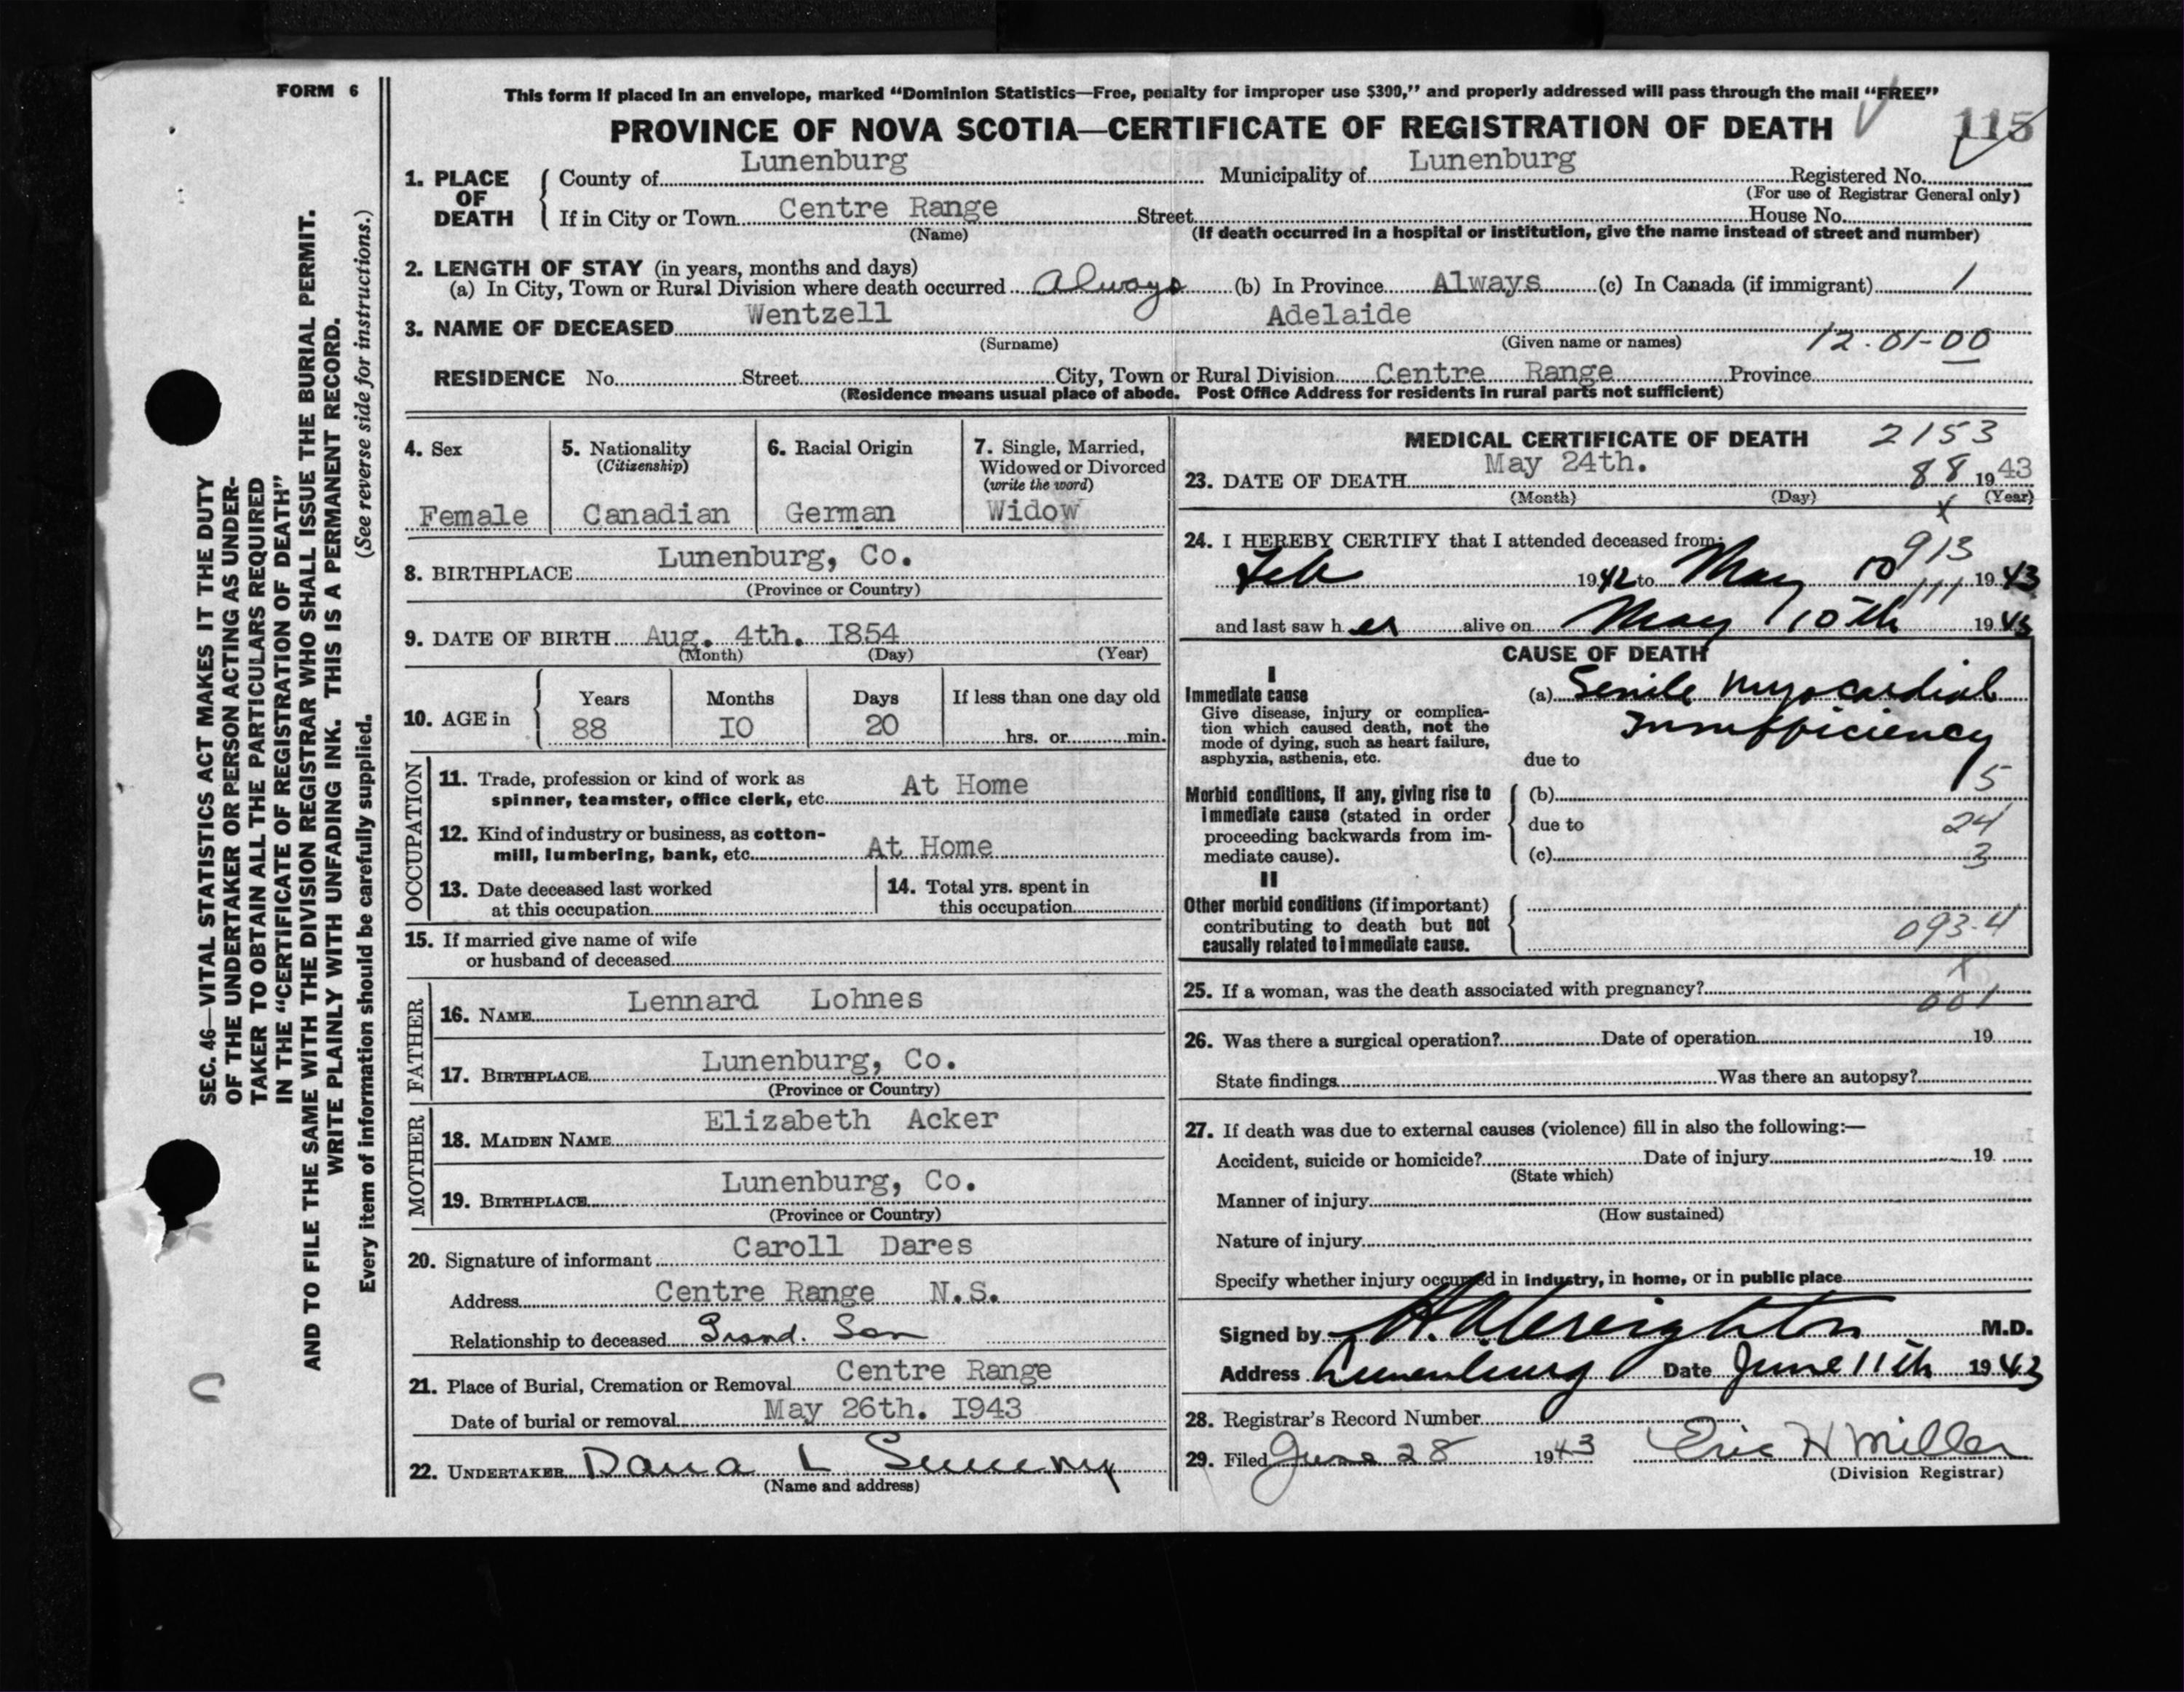 FORM 6
This form if placed in an envelope, marked “Dominion Statistics—Free, penalty for improper use $300,” and properly addressed will pass through the mail “FREE”
PROVINCE OF NOVA SCOTIA—CERTIFICATE OF REGISTRATION OF DEATH
115
1. PLACE OF DEATH
County of Lunenburg Municipality of Lunenburg Registered No.
(For use of Registrar General only)
If in City or Town Centre Range Street House No.
(Name) (If death occurred in a hospital or institution, give the name instead of street and number)
2. LENGTH OF STAY (in years, months and days)
(a) In City, Town or Rural Division where death occurred Always (b) In Province Always (c) In Canada (if immigrant) 1
3. NAME OF DECEASED Wentzell Adelaide
(Surname) (Given name or names) 12-01-00
RESIDENCE No. Street City, Town or Rural Division Centre Range Province
(Residence means usual place of abode. Post Office Address for residents in rural parts not sufficient)
4. Sex
Female
5. Nationality
(Citizenship)
Canadian
6. Racial Origin
German
7. Single, Married,
Widowed or Divorced
(write the word)
Widow
8. BIRTHPLACE Lunenburg, Co.
(Province or Country)
9. DATE OF BIRTH Aug. 4th. I854
(Month) (Day) (Year)
10. AGE in
Years Months Days If less than one day old
88 IO 20 hrs. or min.
OCCUPATION
11. Trade, profession or kind of work as
spinner, teamster, office clerk, etc. At Home
12. Kind of industry or business, as cotton-
mill, lumbering, bank, etc. At Home
13. Date deceased last worked
at this occupation
14. Total yrs. spent in
this occupation
15. If married give name of wife
or husband of deceased
FATHER
16. NAME Lennard Lohnes
17. BIRTHPLACE Lunenburg, Co.
(Province or Country)
MOTHER
18. MAIDEN NAME Elizabeth Acker
19. BIRTHPLACE Lunenburg, Co.
(Province or Country)
20. Signature of informant Caroll Dares
Address Centre Range N.S.
Relationship to deceased Grand. Son
21. Place of Burial, Cremation or Removal Centre Range
Date of burial or removal May 26th. I943
22. UNDERTAKER Dana L Sweeny
(Name and address)
MEDICAL CERTIFICATE OF DEATH 2153
23. DATE OF DEATH May 24th. 88 1943
(Month) (Day) (Year)
x
24. I HEREBY CERTIFY that I attended deceased from: 913
Feb 1942 to May 10 1943
111
and last saw her alive on May 10th 1943
CAUSE OF DEATH
I
Immediate cause
Give disease, injury or complica-
tion which caused death, not the
mode of dying, such as heart failure,
asphyxia, asthenia, etc.
(a) Senile Myocardial
Insufficiency
due to
Morbid conditions, if any, giving rise to
immediate cause (stated in order
proceeding backwards from im-
mediate cause).
(b) 5
due to 24
(c) 3
II
Other morbid conditions (if important)
contributing to death but not
causally related to immediate cause.
093-4
x
25. If a woman, was the death associated with pregnancy?
001
26. Was there a surgical operation? Date of operation 19
State findings Was there an autopsy?
27. If death was due to external causes (violence) fill in also the following:—
Accident, suicide or homicide? Date of injury 19
(State which)
Manner of injury
(How sustained)
Nature of injury
Specify whether injury occurred in industry, in home, or in public place
Signed by H. A. Creighton M.D.
Address Lunenburg Date June 11th 1943
28. Registrar's Record Number
29. Filed June 28 1943 Eric H Miller
(Division Registrar)
SEC. 46—VITAL STATISTICS ACT MAKES IT THE DUTY
OF THE UNDERTAKER OR PERSON ACTING AS UNDER-
TAKER TO OBTAIN ALL THE PARTICULARS REQUIRED
IN THE “CERTIFICATE OF REGISTRATION OF DEATH”
AND TO FILE THE SAME WITH THE DIVISION REGISTRAR WHO SHALL ISSUE THE BURIAL PERMIT.
WRITE PLAINLY WITH UNFADING INK. THIS IS A PERMANENT RECORD.
Every item of information should be carefully supplied. (See reverse side for instructions.)